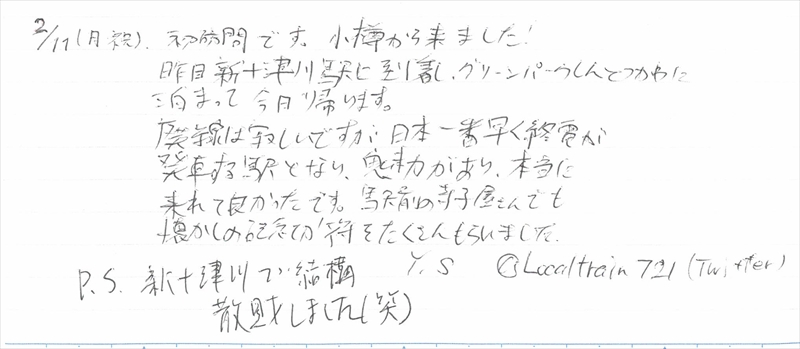 2/11(月祝). 初訪問です。小樽から来ました!
昨日新十津川駅に到着し、グリーンパークしんとつかわに
泊まって今日帰ります。
廃線は寂しいですが日本一番早く終電が
発車する駅となり、魅力があり、本当に
来れて良かったです。駅前の寺子屋さんでも
懐かしの記念切符をたくさんもらいました。
P.S. 新十津川で結構
散財しました(笑)
Y.S @Localtrain721(Twitter)